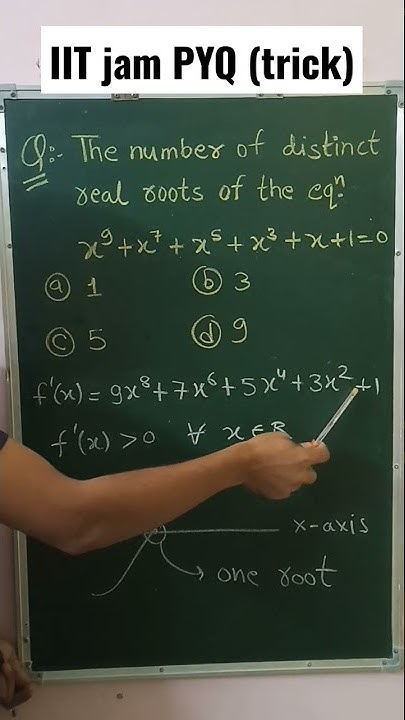 IIT jam PYQ (trick)
Q:- The number of distinct
real roots of the eqⁿ.
x⁹+x⁷+x⁵+x³+x+1=0
ⓐ 1 ⓑ 3
ⓒ 5 ⓓ 9
f'(x) = 9x⁸+7x⁶+5x⁴+3x²+1
f'(x) > 0 ∀ x ∈ R
x-axis
one root